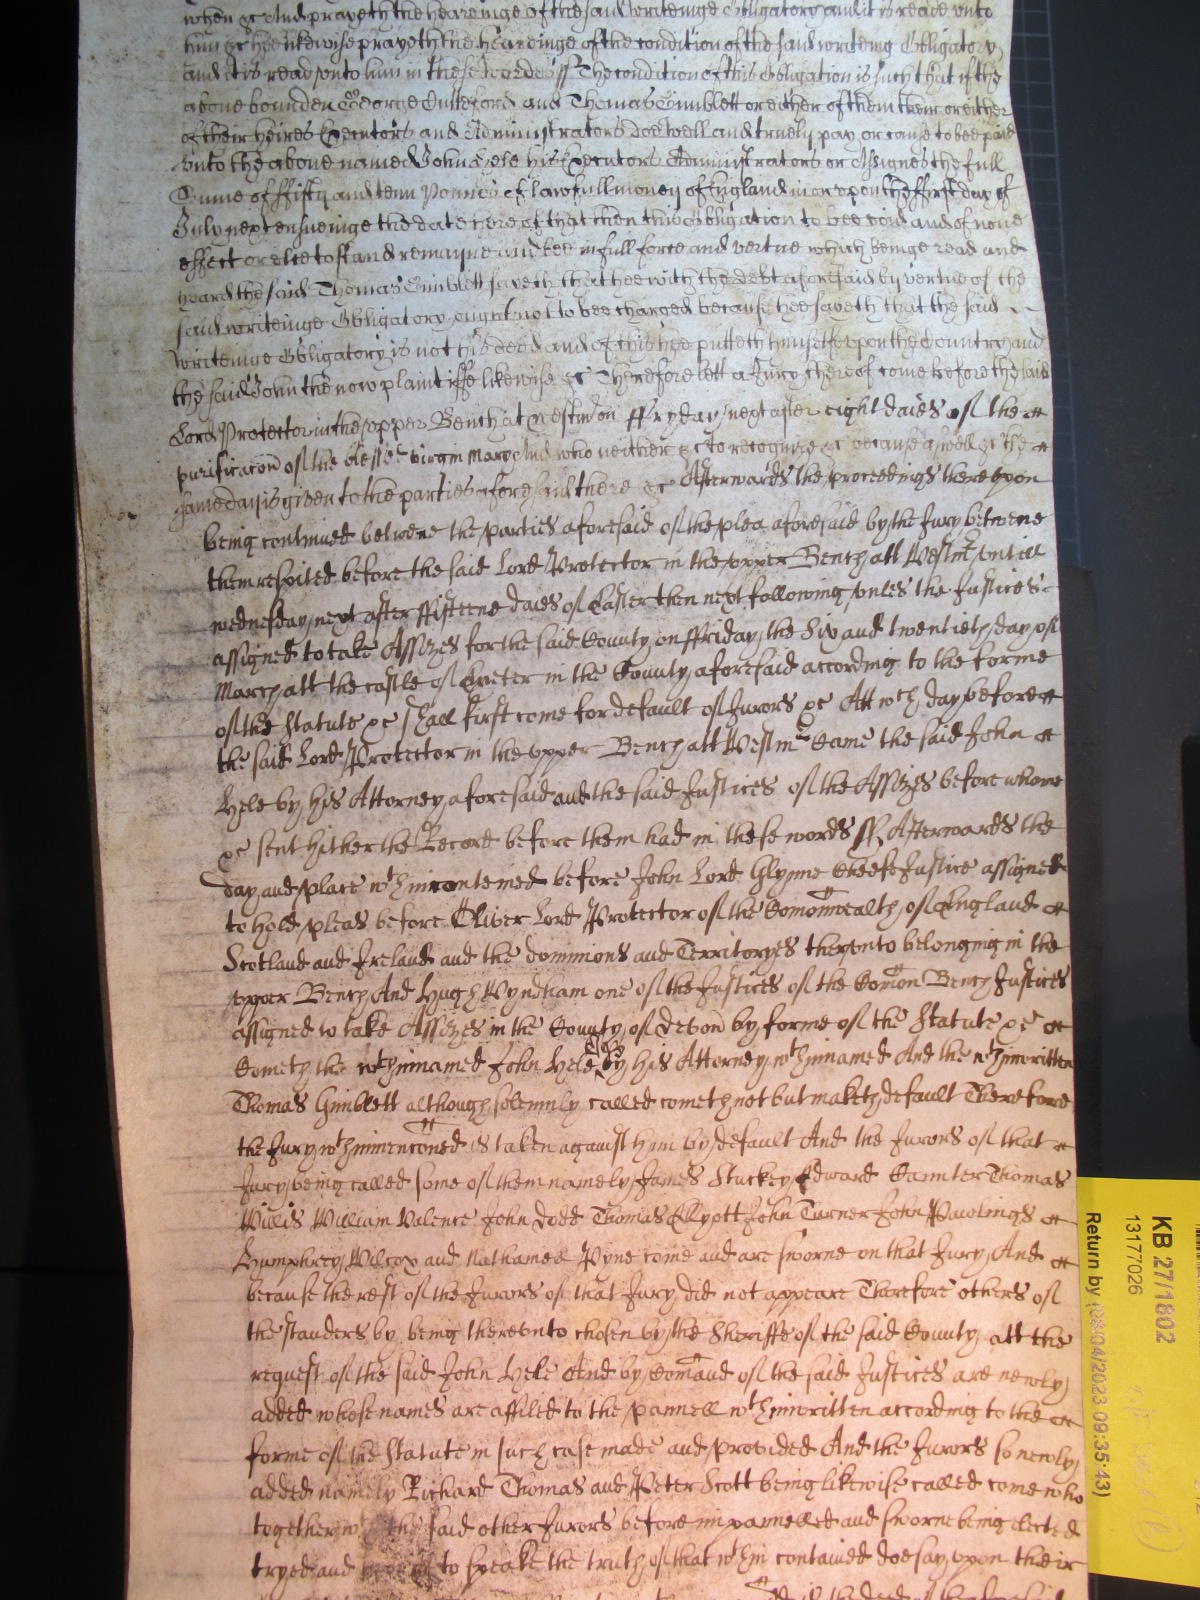 when &c And prayeth the heareinge of the said writeinge Obligatory and it is reade unto
him &c hee likewise prayeth the heareinge of the condition of the said writeing Obligatory
and it is read unto him in these wordes ss The condition of this Obligation is such that if the
above bounden George Guileford and Thomas Gimblett or either of them their or either
of their heires Executors and Administrators doe well and truely pay or cause to bee paid
unto the above named John Hele his Executors Administrators or Assignes the full
Sume of ffifty and tenn Pounds of lawfull money of England in or upon the ffirst day of
July next ensueinge the date hereof that then this Obligation to bee void and of none
effect or else to stand remayne and bee in full force and vertue which beinge read and
heard the said Thomas Gimblett saveth that hee with the debt aforesaid by vertue of the
said writeinge Obligatory ought not to bee charged because hee sayeth that the said
writeinge Obligatory is not his deed and of this hee putteth himselfe upon the Country and
the said John the now plaintiffe likewise &c Therefore lett a Jury thereof come before the said
Lord Protector in the upper Bench at Westm on ffryday next after eight daies of the
purificacon of the blessed virgin Mary And who neither &c to recognize &c because aswell &c the
same day is given to the parties aforesaid there &c Afterwards the proceedings thereupon
being continued betwene the parties aforesaid of the plea aforesaid by the Jury betwene
them respited before the said Lord Protector in the upper Bench att Westmr untill
wednesday next after ffifteene daies of Easter then next following unles the Justices
assigned to take Assizes for the said County on ffriday the Six and twentieth day of
March att the castle of Exeter in the County aforesaid according to the forme
of the Statute &c shall first come for default of Jurors &c Att wch day before
the said Lord Protector in the upper Bench att Westmr Came the said John
Hele by his Attorney aforesaid and the said Justices of the Assizes before whome
&c sent hither the Record before them had in these words ss Afterwards the
day and place wthin contemed before John Lord Glynne Cheefe Justice assigned
to hold pleas before Oliver Lord Protector of the Comonwealth of England
Scotland and Ireland and the dominions and Territoryes therunto belonging in the
upper Bench And Hugh Wyndham one of the Justices of the Comon Bench Justices
assigned to take Assizes in the County of Devon by forme of the Statute &c
Cometh the wthinnamed John Hele by his Attorney wthinnamed And the wthinwritten
Thomas Gimblett although solemnly called cometh not but maketh default Therefore
the Jury wthinmenconed is taken against him by default And the Jurors of that
Jury being called some of them namely James Stuckey Edward Cainter Thomas
Willis William Valence John Dodd Thomas Ellyott John Turner John Pawlings
Humphrey Wilcox and Nathaniel Pyne come and are sworne on that Jury And
because the rest of the Jurors of that Jury did not appeare Therefore others of
the standers by being thereunto chosen by the Sheriffe of the said County att the
request of the said John Hele And by Comaund of the said Justices are newly
added whose names are affiled to the pannell wthinwritten according to the
forme of the Statute in such case made and provided And the Jurors so newly
added namely Richard Thomas and Peter Scott being likewise called come who
together wth the said other Jurors before impannelled and sworne being elected
tryed and to speake the truth of that wthin contained doe say upon their
KB 27/1802
13177026
Return by (08/04/2023 09:35:43)